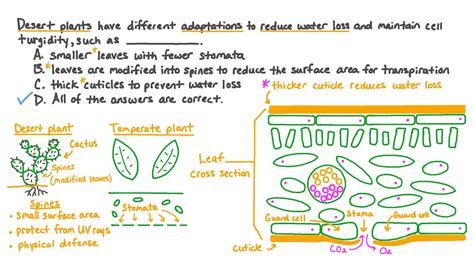 Desert plants have different adaptations to reduce water loss and maintain cell
turgidity, such as ____________.
A. smaller *leaves with fewer stomata
B. *leaves are modified into spines to reduce the surface area for transpiration
C. thick *cuticles to prevent water loss
*thicker cuticle reduces water loss
✓ D. All of the answers are correct.
Desert plant
Temperate plant
Cactus
Spines
(modified leaves)
Spines
• small surface area
• protect from UV rays
• physical defense
Stomata
Leaf
cross section
Guard cell
Stoma
Guard cell
Cuticle
CO2
O2